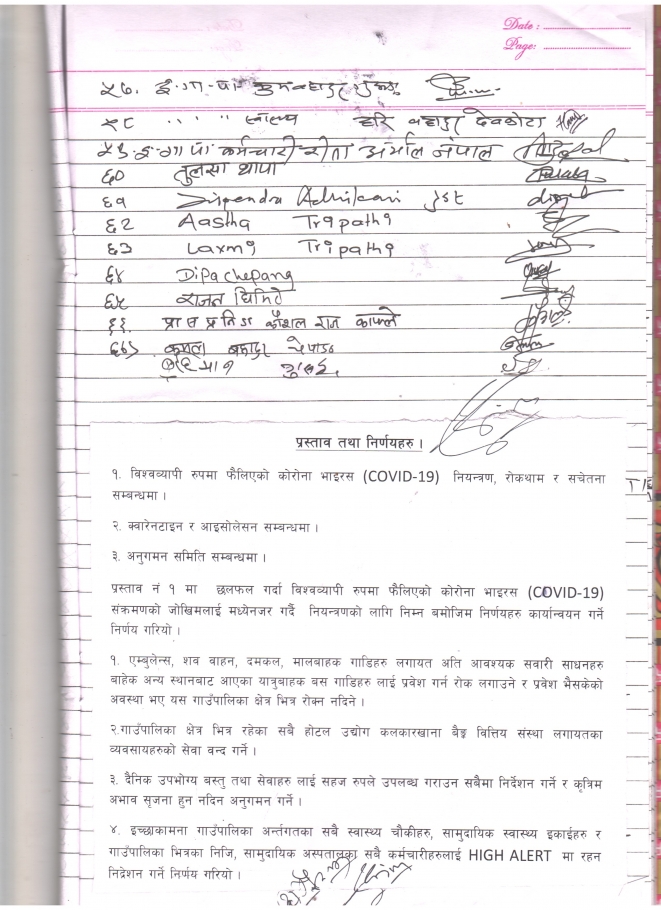 Date :
Page:
५७. इ.गा.पा
५८ " " " स्वास्थ्य हरि बहादुर देवकोटा
५९ इ.गा.पा कर्मचारी गीता अर्माल नेपाल
६० तुलसा थापा
६१ Dipendra Adhikari
६२ Aastha Tripathi
६३ Laxmi Tripathi
६४ Dipa Chepang
६५ राजन घिमिरे
६६ प्रा स प्रतिs कौशल राज काफ्ले
६७ कमला बहादुर चेपाङ
प्रस्ताव तथा निर्णयहरु ।
१. विश्वव्यापी रुपमा फैलिएको कोरोना भाइरस (COVID-19) नियन्त्रण, रोकथाम र सचेतना
सम्बन्धमा ।
२. क्वारेनटाइन र आइसोलेसन सम्बन्धमा ।
३. अनुगमन समिति सम्बन्धमा ।
प्रस्ताव नं १ मा छलफल गर्दा विश्वव्यापी रुपमा फैलिएको कोरोना भाइरस (COVID-19)
संक्रमणको जोखिमलाई मध्येनजर गर्दै नियन्त्रणको लागि निम्न बमोजिम निर्णयहरु कार्यान्वयन गर्ने
निर्णय गरियो ।
१. एम्बुलेन्स, शव वाहन, दमकल, मालबाहक गाडिहरु लगायत अति आवश्यक सवारी साधनहरु
बाहेक अन्य स्थानबाट आएका यात्रुबाहक बस गाडिहरु लाई प्रवेश गर्न रोक लगाउने र प्रवेश भैसकेको
अवस्था भए यस गाउँपालिका क्षेत्र भित्र रोक्न नदिने ।
२.गाउँपालिका क्षेत्र भित्र रहेका सबै होटल उद्योग कलकारखाना बैङ्क वित्तिय संस्था लगायतका
व्यवसायहरुको सेवा वन्द गर्ने ।
३. दैनिक उपभोग्य बस्तु तथा सेवाहरु लाई सहज रुपले उपलब्ध गराउन सबैमा निर्देशन गर्ने र कृत्रिम
अभाव सृजना हुन नदिन अनुगमन गर्ने ।
४. इच्छाकामना गाउँपालिका अर्न्तगतका सबै स्वास्थ्य चौकीहरु, सामुदायिक स्वास्थ्य इकाईहरु र
गाउँपालिका भित्रका निजि, सामुदायिक अस्पतालका सबै कर्मचारीहरुलाई HIGH ALERT मा रहन
निद्रेशन गर्ने निर्णय गरियो ।